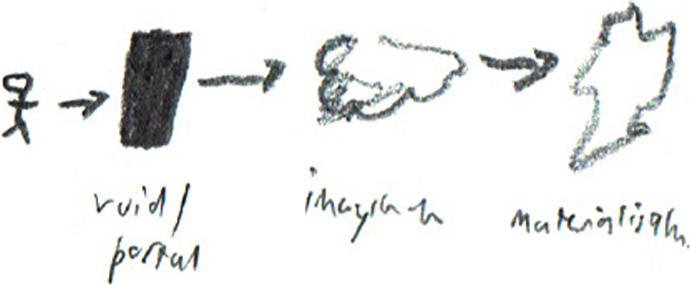 void/
portal
imagination
materialisation